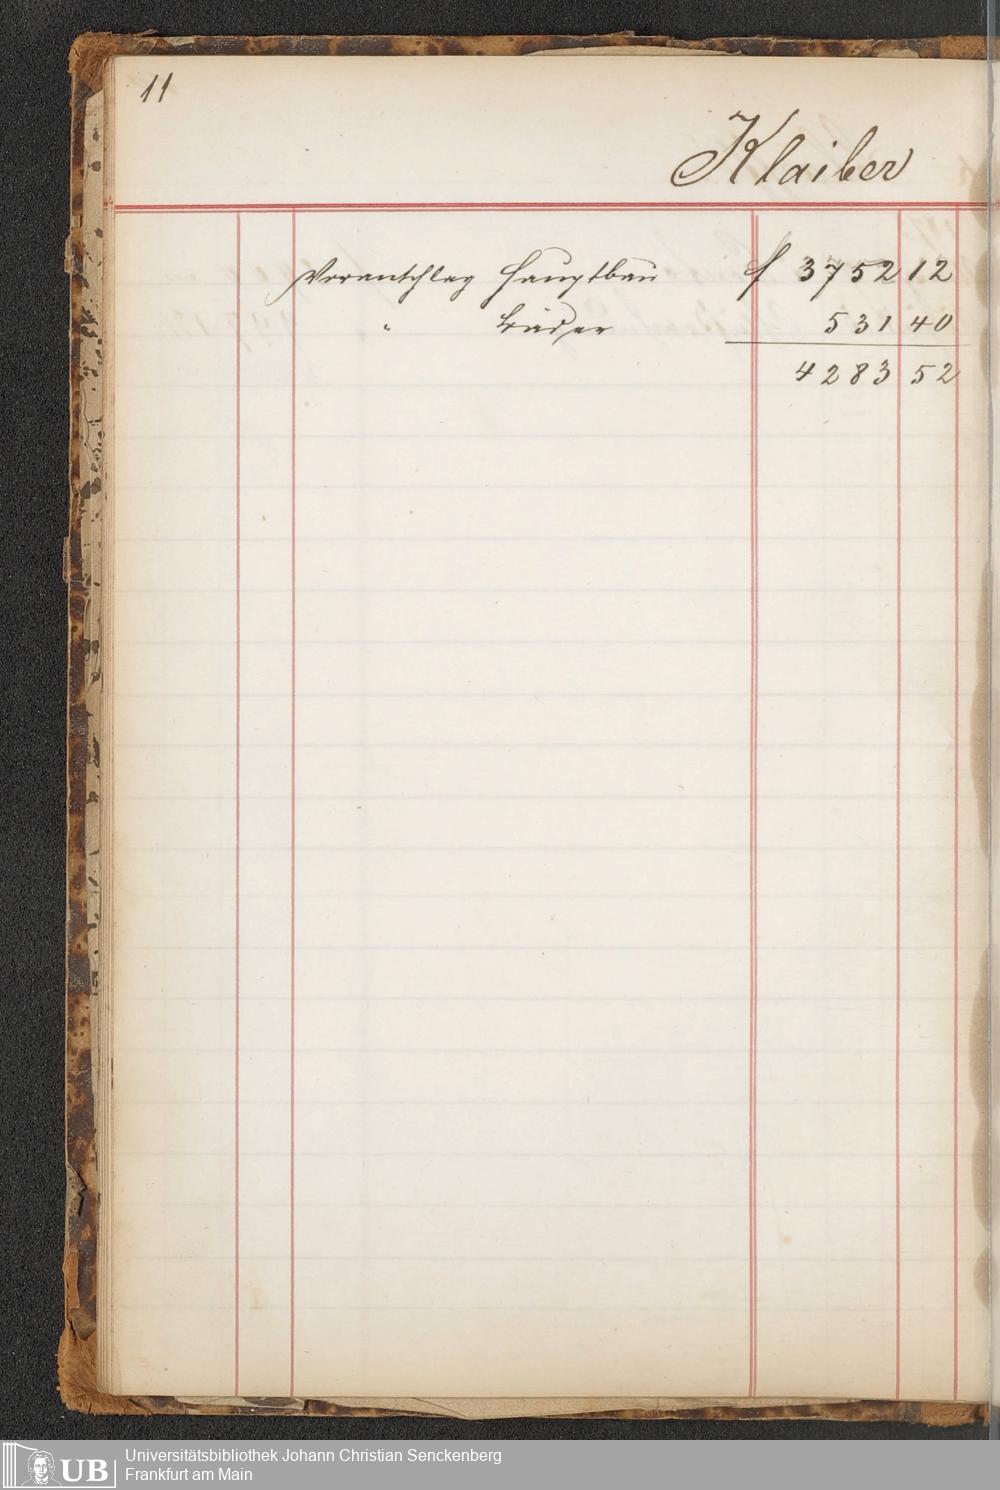 11
Klaiber
Voranschlag Hauptbau f 3752 12
" Bäder 531 40
4283 52
UB
Universitätsbibliothek Johann Christian Senckenberg
Frankfurt am Main